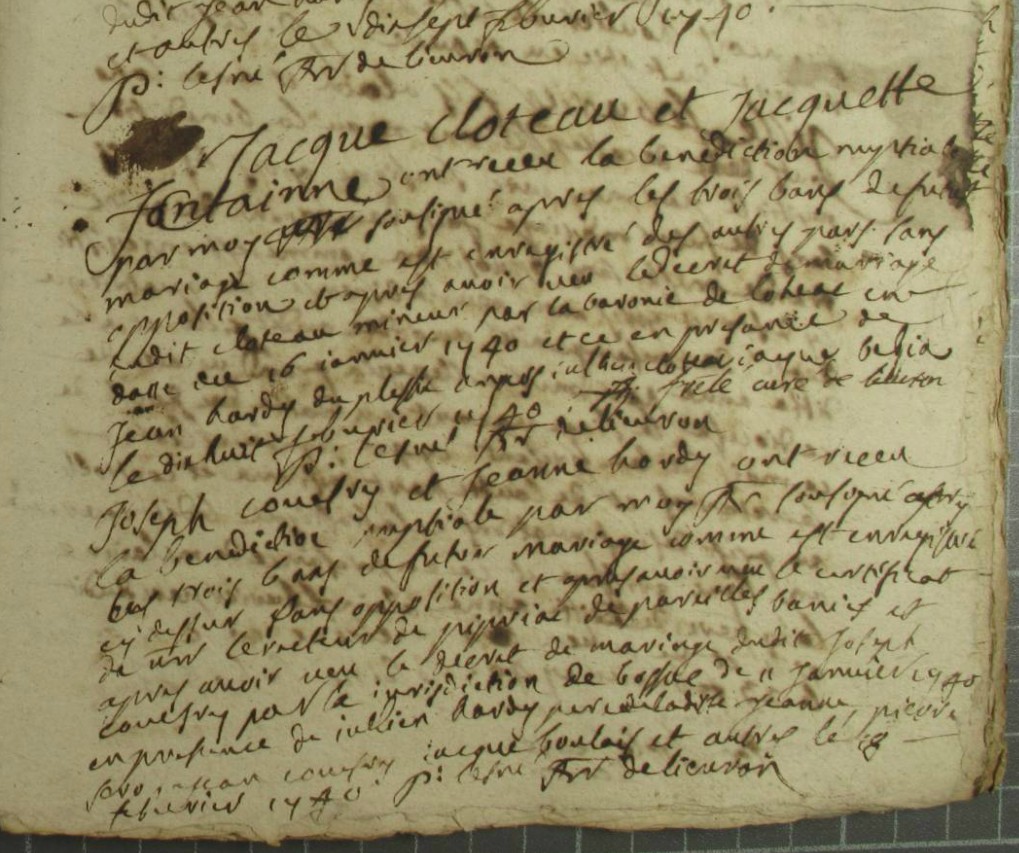 dudit Jean
et autres le dixsept febvrier 1740
p: lesné ptre de lieuron
Jacque cloteau et Jacquette
fontainne ont receu la benediction nuptiale
par moy sousigné apres les trois bans de futur
mariage comme est enregistré des autres pars sans
opposition et apres avoir veu le decret de mariage
dudit cloteau mineur par la baronie de loheac en
datte du 16 janvier 1740 et ce en presance de
jean hardy du plessix jullien cloteau jacque
le dixhuit febvrier 1740 curé de lieuron
p: lesné ptre de lieuron
Joseph couesry et Jeanne hardy ont receu
la benediction nuptiale par moy ptre sousigné apres
les trois bans de futur mariage comme est enregistré
cy dessur sans opposition et apres avoir veu le certificat
de mr le recteur de pipriac de pareilles banies et
apres avoir veu le decret de mariage dudit Joseph
couesry par la jurisdiction de bossac de 11 janvier 1740
en presence de jullien hardy pere de ladite jeanne, pierre
couesry jacque boulais et autres le 18
febvrier 1740 p: lesné ptre de lieuron